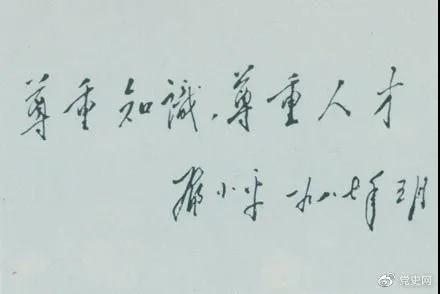 尊重知識，尊重人才
鄧小平 一九八七年五月
党史网